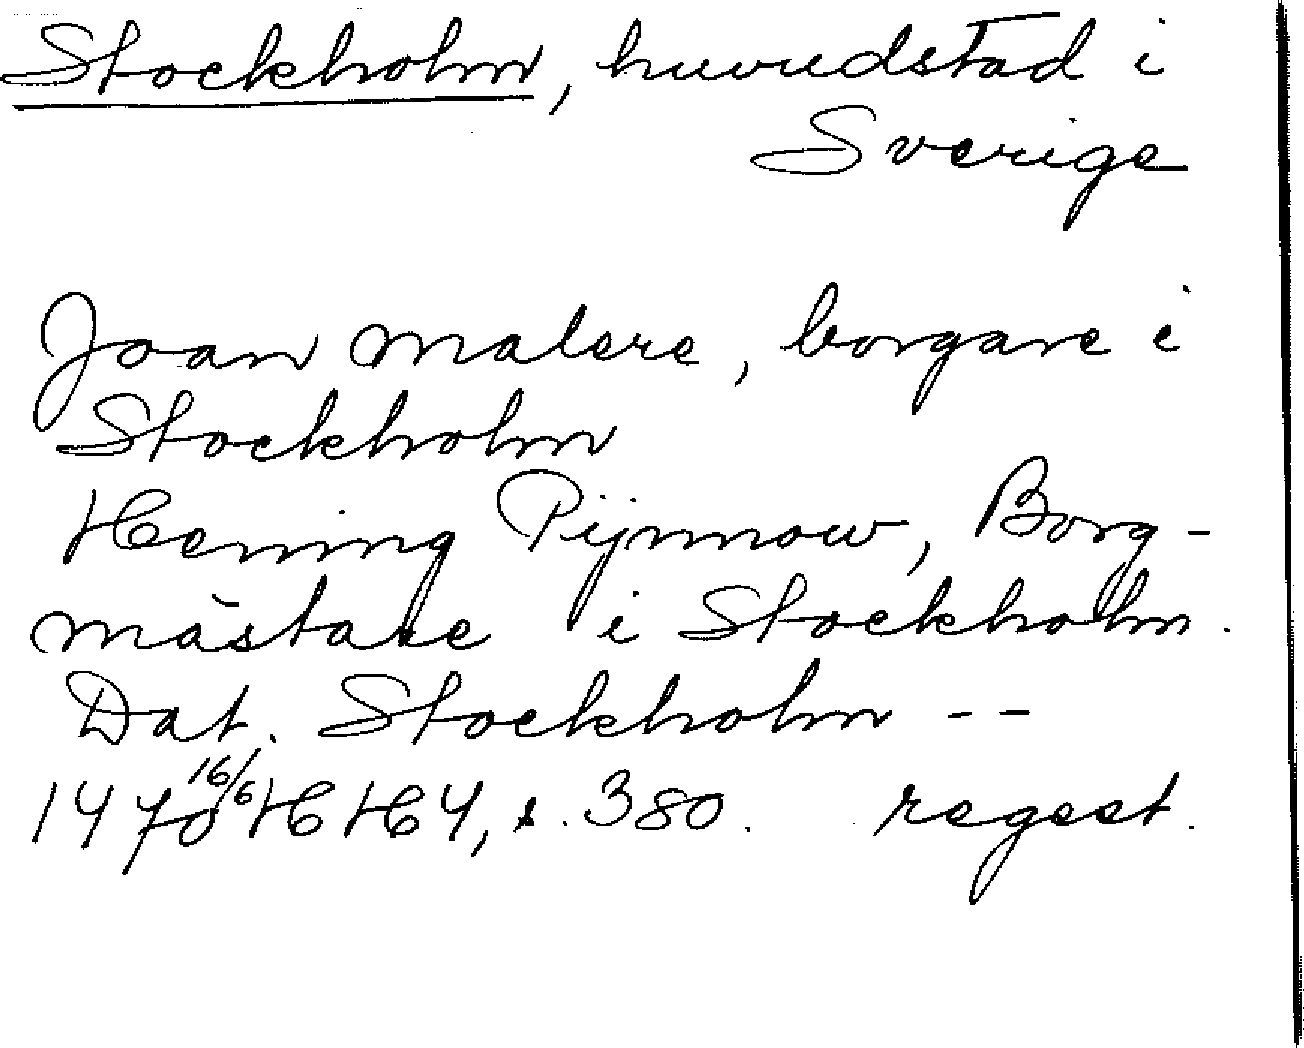 Stockholm, huvudstad i
Sverige
Joan malere, borgare i
Stockholm
Hening Pijnnow, Borg-
mästare i Stockholm.
Dat. Stockholm --
1470 16/6 HH 4, s. 380. regest.